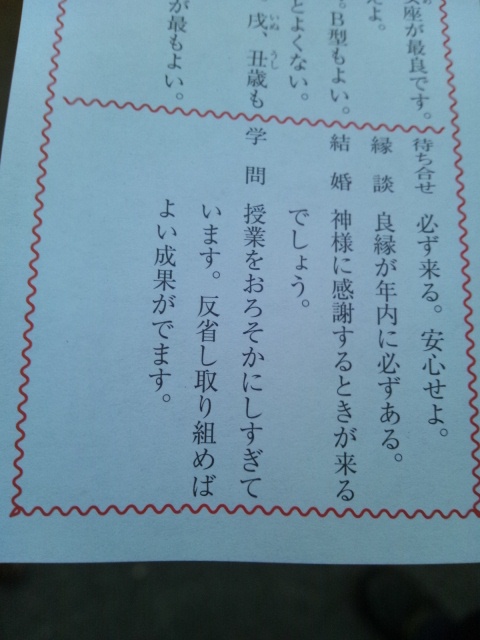 座が最良です。
えよ。
。B型もよい。
とよくない。
、戌、丑歳も
が最もよい。
待ち合せ 必ず来る。安心せよ。
縁談 良縁が年内に必ずある。
結婚 神様に感謝するときが来る
でしょう。
学問 授業をおろそかにしすぎて
います。反省し取り組めば
よい成果がでます。